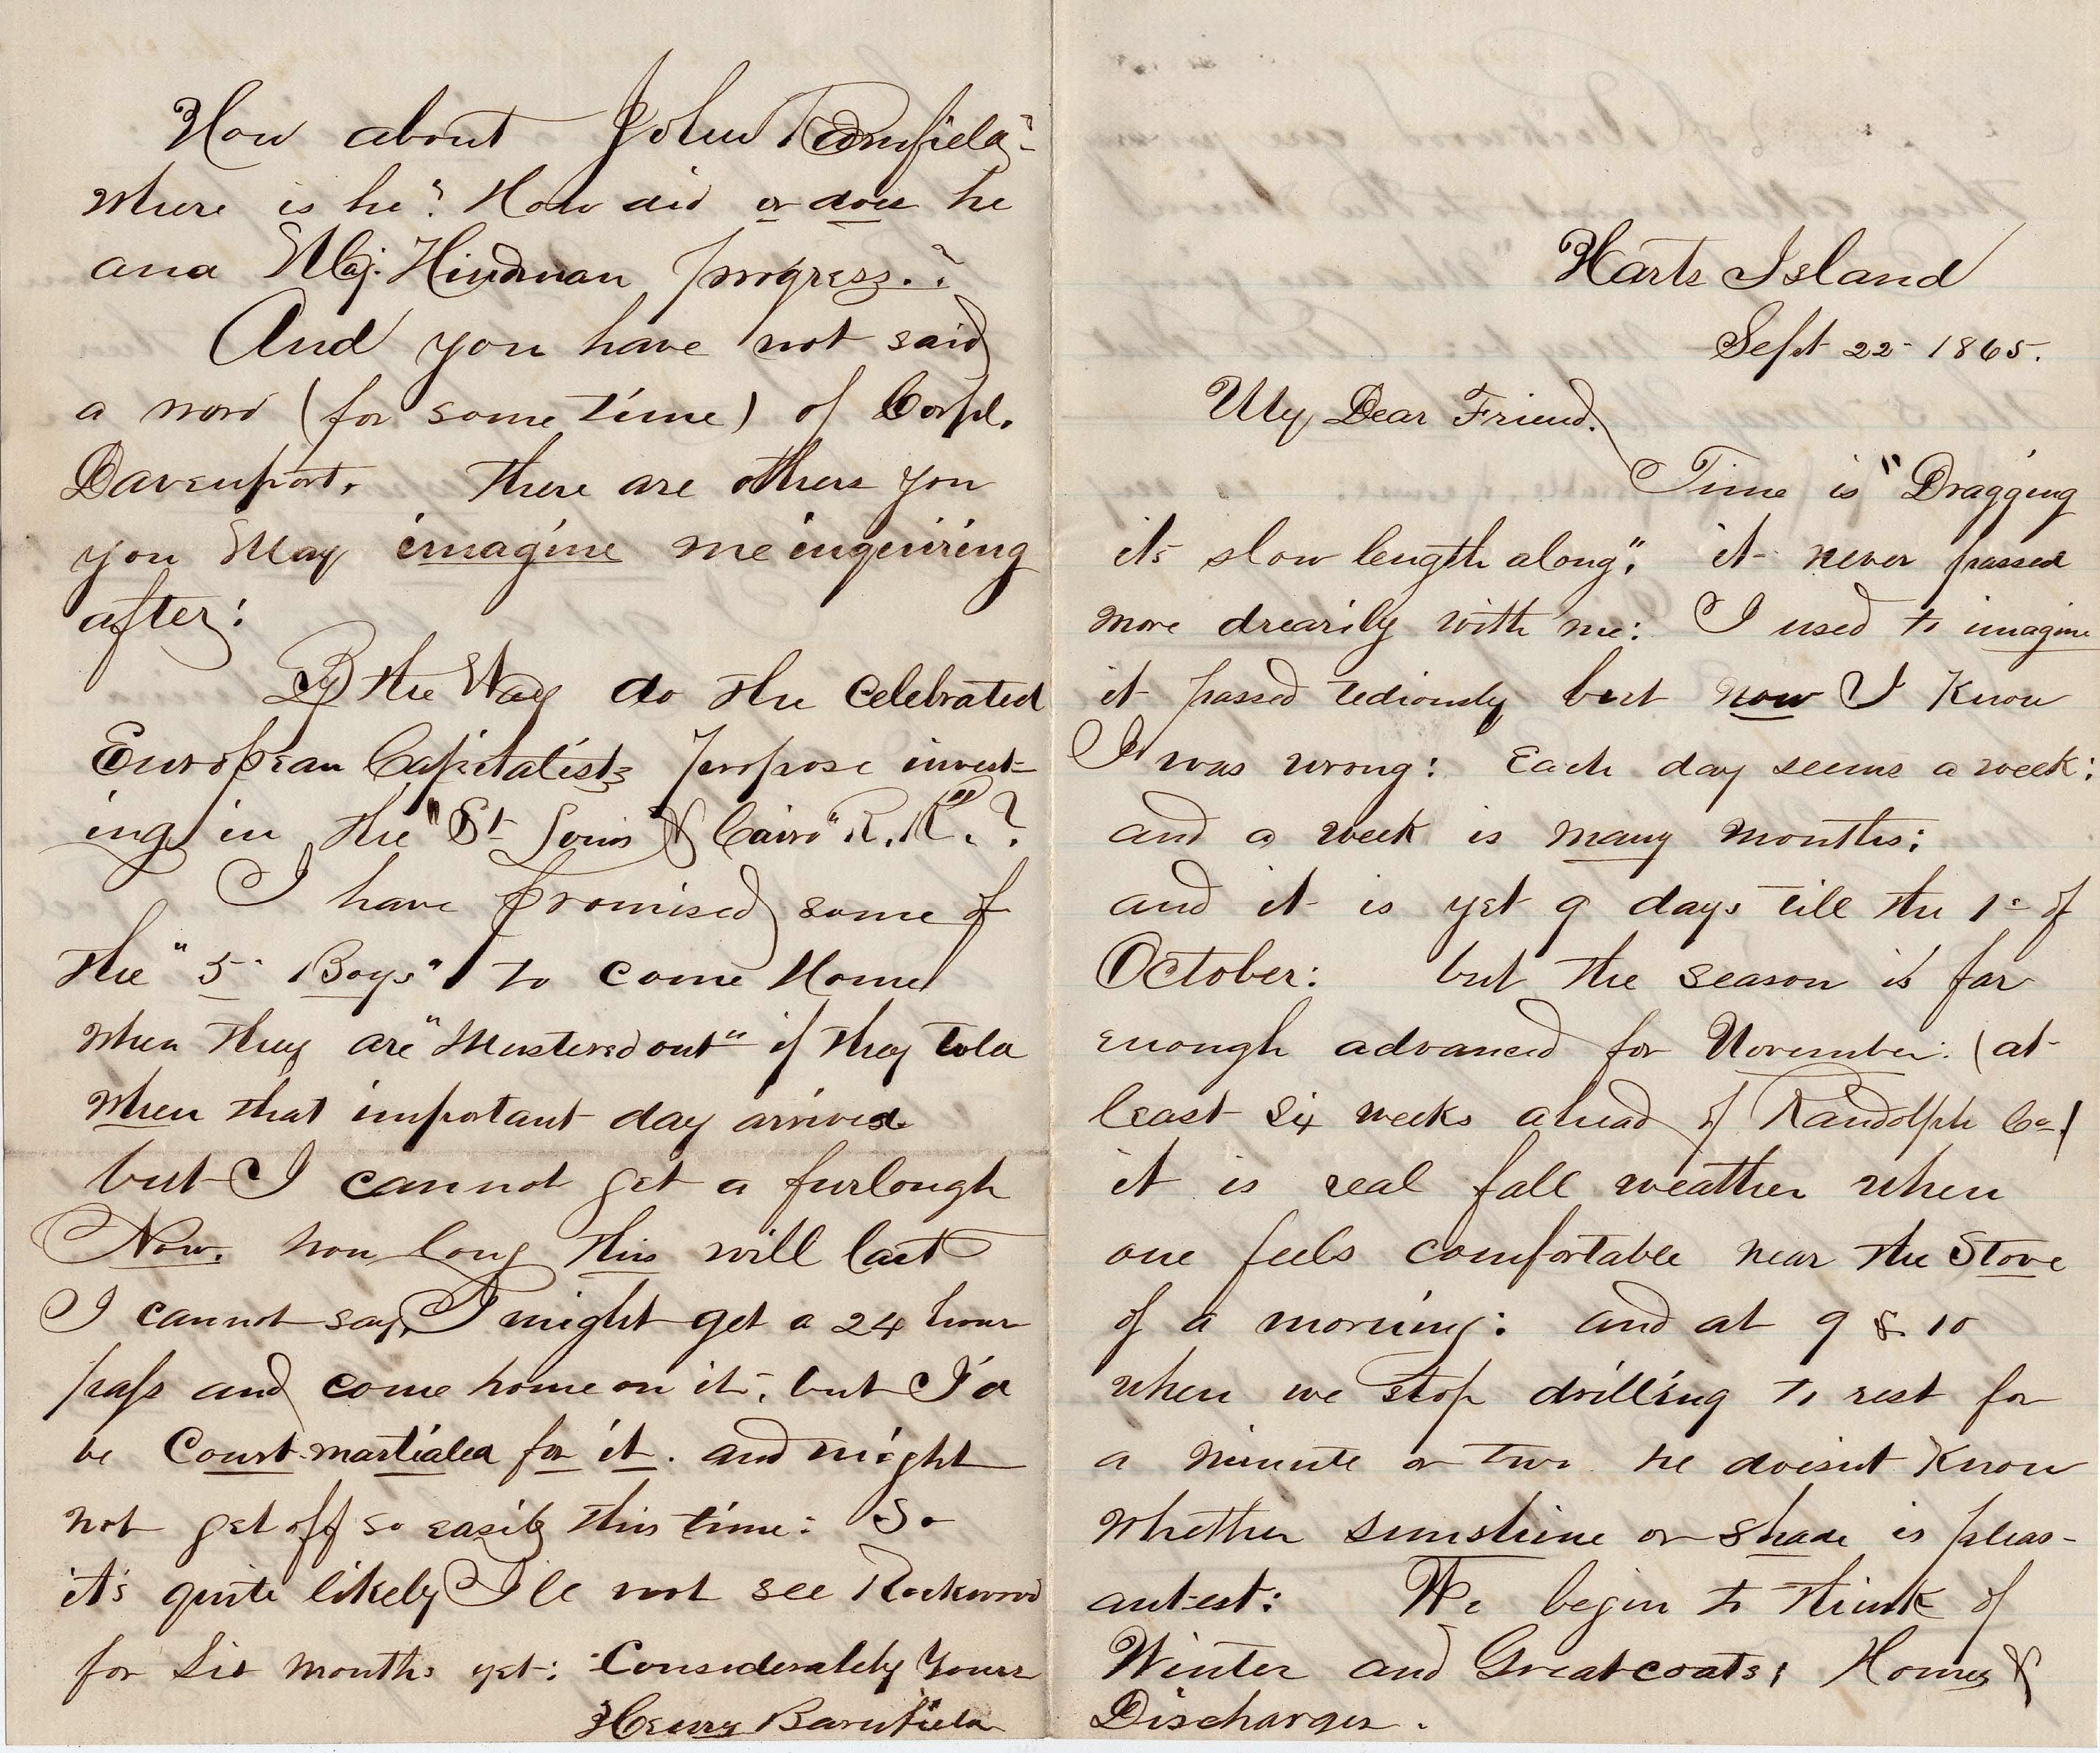 Harts Island
Sept 22 - 1865.
My Dear Friend.
Time is "Dragging
its slow length along". it never passed
more drearily with me: I used to imagine
it passed tediously but now I Know
I was wrong: Each day seems a week:
and a week is many months:
and it is yet 9 days till the 1st of
October: but the season is far
enough advanced for November: (at
least six weeks ahead of Randolph Co)
it is real fall weather when
one feels comfortable near the Stove
of a morning: and at 9 & 10
when we stop drilling to rest for
a minute or two he doesnt Know
whether sunshine or shade is pleas-
antest: We begin to think of
Winter and Greatcoats; Homes &
Discharges.
How about John Barnfield?
where is he? How did or does he
and Maj. Hindman progress.?
And you have not said
a word (for some time) of Corpl.
Davenport. There are others you
you May imagine me inquiring
after:
By the Way do the Celebrated
European Capitalists Purpose invest-
ing in the "St Louis & Cairo" R.R".?
I have promised some of
the "5 Boys" to come Home
when they are "Mustered out" if they told
when that important day arrived
but I cannot get a furlough
Now. how long this will last
I cannot say, I might get a 24 hour
pass and come home on it, but I'd
be Court-martialed for it. and might
not get off so easily this time: So
it's quite likely Ile not see Rockwood
for six months yet: Considerately Yours
Henry Barnfield